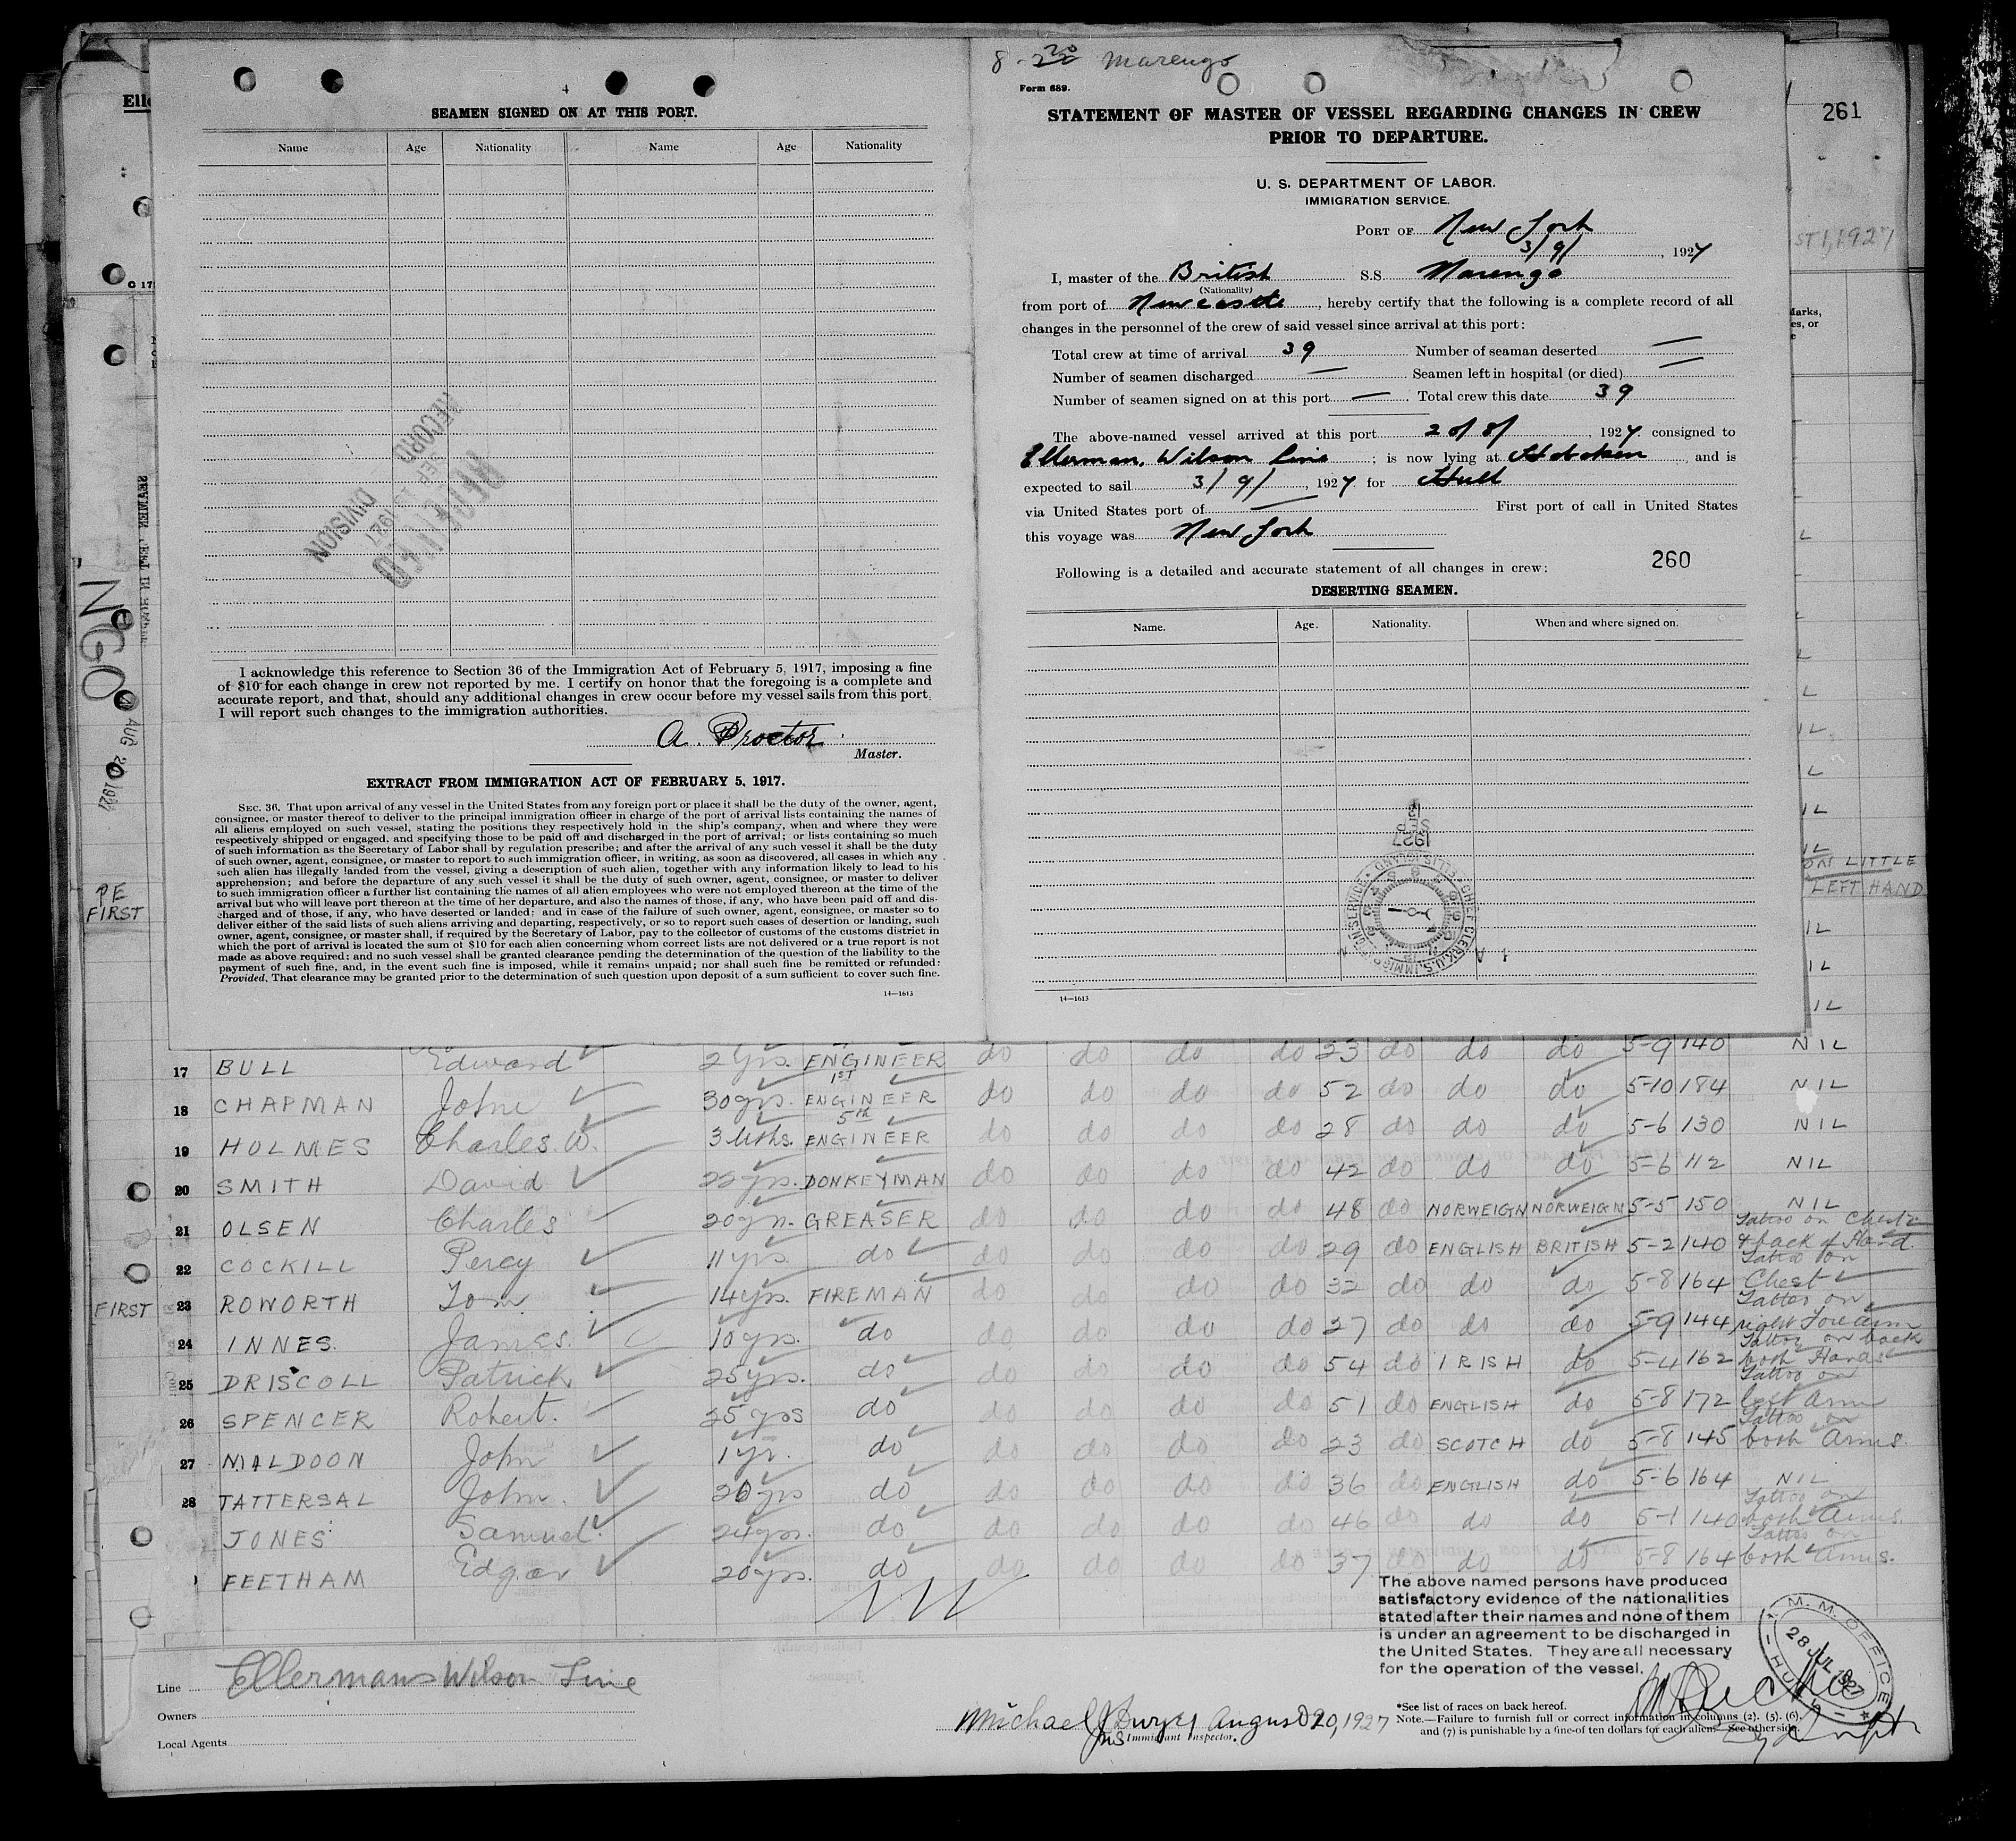 4
SEAMEN SIGNED ON AT THIS PORT.
Name Age Nationality Name Age Nationality
RECEIVED
SEP 1927
RECORD DIVISION
I acknowledge this reference to Section 36 of the Immigration Act of February 5, 1917, imposing a fine
of $10 for each change in crew not reported by me. I certify on honor that the foregoing is a complete and
accurate report, and that, should any additional changes in crew occur before my vessel sails from this port,
I will report such changes to the immigration authorities.
A. Proctor
Master.
EXTRACT FROM IMMIGRATION ACT OF FEBRUARY 5, 1917.
SEC. 36. That upon arrival of any vessel in the United States from any foreign port or place it shall be the duty of the owner, agent,
consignee, or master thereof to deliver to the principal immigration officer in charge of the port of arrival lists containing the names of
all aliens employed on such vessel, stating the positions they respectively hold in the ship's company, when and where they were
respectively shipped or engaged, and specifying those to be paid off and discharged in the port of arrival; or lists containing so much
of such information as the Secretary of Labor shall by regulation prescribe; and after the arrival of any such vessel it shall be the duty
of such owner, agent, consignee, or master to report to such immigration officer, in writing, as soon as discovered, all cases in which any
such alien has illegally landed from the vessel, giving a description of such alien, together with any information likely to lead to his
apprehension; and before the departure of any such vessel it shall be the duty of such owner, agent, consignee, or master to deliver
to such immigration officer a further list containing the names of all alien employees who were not employed thereon at the time of the
arrival but who will leave port thereon at the time of her departure, and also the names of those, if any, who have been paid off and dis-
charged and of those, if any, who have deserted or landed; and in case of the failure of such owner, agent, consignee, or master so to
deliver either of the said lists of such aliens arriving and departing, respectively, or so to report such cases of desertion or landing, such
owner, agent, consignee, or master shall, if required by the Secretary of Labor, pay to the collector of customs of the customs district in
which the port of arrival is located the sum of $10 for each alien concerning whom correct lists are not delivered or a true report is not
made as above required; and no such vessel shall be granted clearance pending the determination of the question of the liability to the
payment of such fine, and, in the event such fine is imposed, while it remains unpaid; nor shall such fine be remitted or refunded:
Provided, That clearance may be granted prior to the determination of such question upon deposit of a sum sufficient to cover such fine.
14—1613
8-220 Marengo
Form 689.
STATEMENT OF MASTER OF VESSEL REGARDING CHANGES IN CREW
PRIOR TO DEPARTURE.
U. S. DEPARTMENT OF LABOR.
IMMIGRATION SERVICE.
PORT OF New York
3/9/, 1927
I, master of the British S.S. Marengo
(Nationality)
from port of Newcastle, hereby certify that the following is a complete record of all
changes in the personnel of the crew of said vessel since arrival at this port:
Total crew at time of arrival 39 Number of seaman deserted —
Number of seamen discharged — Seamen left in hospital (or died) —
Number of seamen signed on at this port — Total crew this date 39
The above-named vessel arrived at this port 20/8/, 1927. consigned to
Ellerman, Wilson Line; is now lying at Hoboken, and is
expected to sail 3/9/, 1927 for Hull
via United States port of — First port of call in United States
this voyage was New York
260
Following is a detailed and accurate statement of all changes in crew:
DESERTING SEAMEN.
Name. Age. Nationality. When and where signed on.
1927
CHIEF CLERK, U.S. IMMIGRATION SERVICE ELLIS ISLAND
14—1613
261
ST 1, 1927
Marks,
es, or
ON LITTLE
LEFT HAND
NGO
AUG 20 1927
PE
FIRST
17 BULL Edward 2 yrs. ENGINEER do do do do 23 do do do 5-9 140 NIL
18 CHAPMAN John 30 yrs. 1ST ENGINEER do do do do 52 do do do 5-10 184 NIL
19 HOLMES Charles. W. 3 Mths. 5th ENGINEER do do do do 28 do do do 5-6 130 NIL
20 SMITH David 22 yrs. DONKEYMAN do do do do 42 do do do 5-6 112 NIL
21 OLSEN Charles 20 yrs. GREASER do do do do 48 do NORWEIGN NORWEIGN 5-5 150 NIL
22 COCKILL Percy 11 yrs do do do do do 29 do ENGLISH BRITISH 5-2 140 Tattoo on Chest & back of Hand.
FIRST 23 ROWORTH Tom 14 yrs. FIREMAN do do do do 32 do do do 5-8 164 Tattoo on Chest
24 INNES. James. 10 yrs. do do do do do 27 do do do 5-9 144 Tattoo on right Forearm
25 DRISCOLL Patrick 25 yrs. do do do do do 54 do IRISH do 5-4 162 Tattoo on back both Hands
26 SPENCER Robert. 25 yrs do do do do do 51 do ENGLISH do 5-8 172 Tattoo on left Arm
27 MALDOON John 1 yr. do do do do do 23 do SCOTCH do 5-8 145 Tattoo on both Arms.
28 TATTERSAL John. 20 yrs do do do do do 36 do ENGLISH do 5-6 164 NIL
JONES Samuel. 24 yrs. do do do do do 46 do do do 5-1 140 Tattoo on both Arms.
FEETHAM Edgar 20 yrs. do do do do do 37 do do do 5-8 164 Tattoo on both Arms.
The above named persons have produced
satisfactory evidence of the nationalities
stated after their names and none of them
is under an agreement to be discharged in
the United States. They are all necessary
for the operation of the vessel.
M. M. OFFICE
28 JUL 1927
HULL
Line Ellermans Wilson Line
Owners
Local Agents
Michael J Dwyer August 20, 1927
Immigrant Inspector.
*See list of races on back hereof.
Note.—Failure to furnish full or correct information in columns (2), (5), (6),
and (7) is punishable by a fine of ten dollars for each alien. See other side.